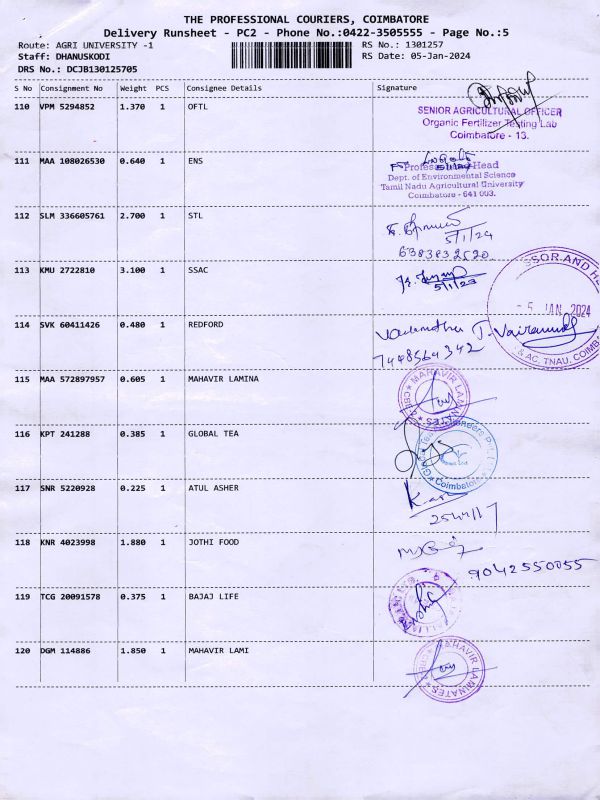 THE PROFESSIONAL COURIERS, COIMBATORE
Delivery Runsheet - PC2 - Phone No.:0422-3505555 - Page No.:5
Route: AGRI UNIVERSITY -1 RS No.: 1301257
Staff: DHANUSKODI RS Date: 05-Jan-2024
DRS No.: DCJB130125705
S No Consignment No Weight PCS Consignee Details Signature
110 VPM 5294852 1.370 1 OFTL
SENIOR AGRICULTURAL OFFICER
Organic Fertilizer Testing Lab
Coimbatore - 13.
111 MAA 108026530 0.640 1 ENS
Professor Head
Dept. of Environmental Science
Tamil Nadu Agricultural University
Coimbatore - 641 003.
112 SLM 336605761 2.700 1 STL
5/1/24
6383832520
113 KMU 2722810 3.100 1 SSAC
SSOR AND HE
5 JAN 2024
& AC, TNAU, COIMBA
114 SVK 60411426 0.480 1 REDFORD
7448564342
115 MAA 572897957 0.605 1 MAHAVIR LAMINA
MAHAVIR LAMINATES
CBE
116 KPT 241288 0.385 1 GLOBAL TEA
Coimbatore
117 SNR 5220928 0.225 1 ATUL ASHER
118 KNR 4023998 1.880 1 JOTHI FOOD
9042550055
119 TCG 20091578 0.375 1 BAJAJ LIFE
120 DGM 114886 1.850 1 MAHAVIR LAMI
MAHAVIR LAMINATES
CBE